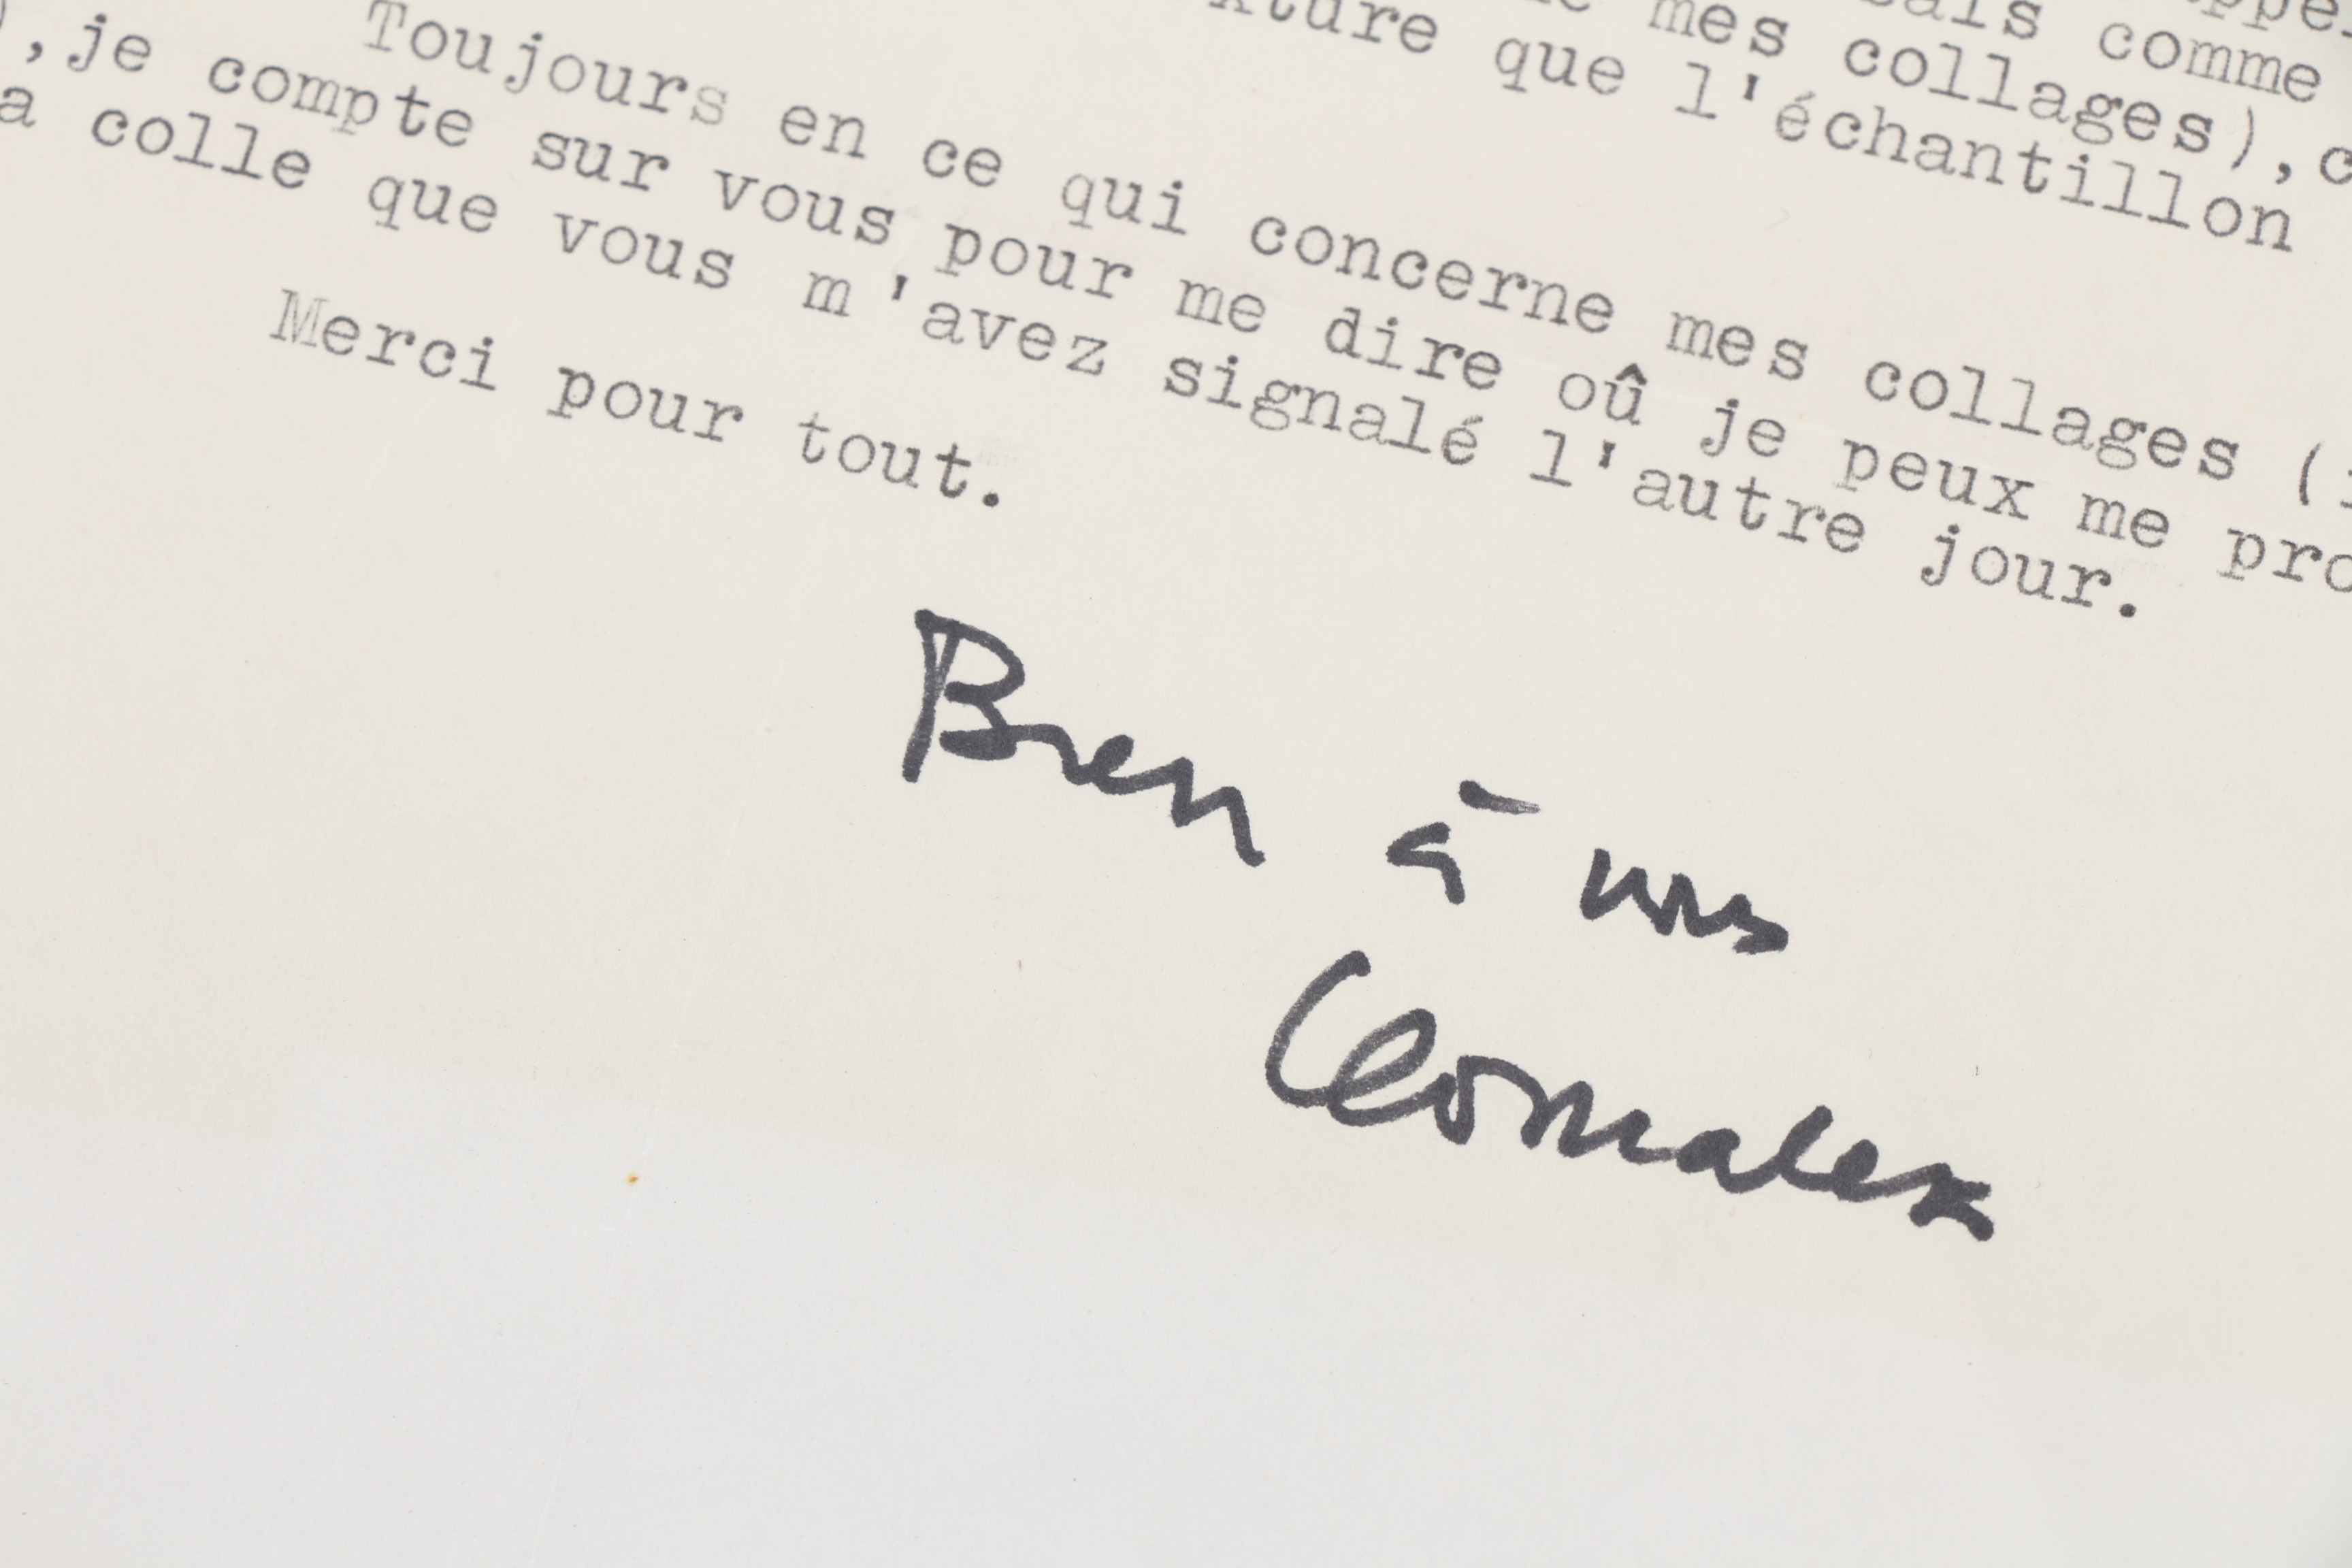 comme
mes collages),c
xture que l'échantillon
Toujours en ce qui concerne mes collages (
),je compte sur vous pour me dire oû je peux me pro
a colle que vous m'avez signalé l'autre jour.
Merci pour tout.
Bien à vous